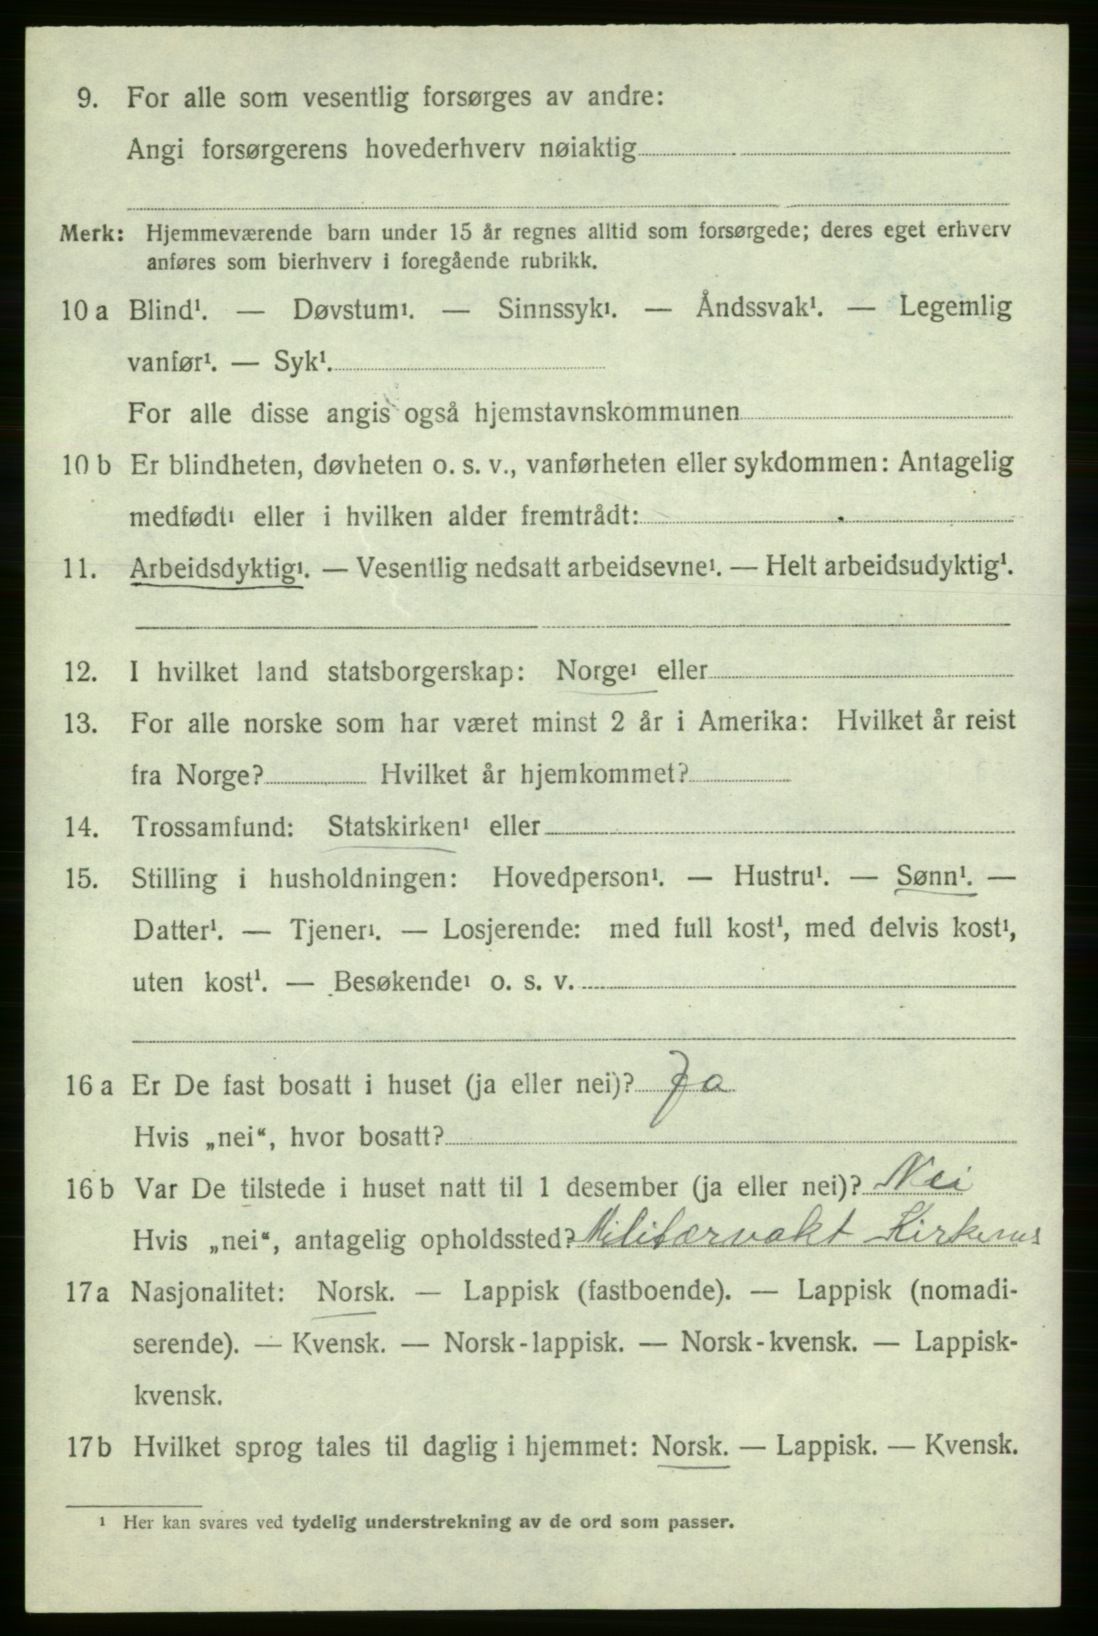 9. For alle som vesentlig forsørges av andre:
Angi forsørgerens hovederhverv nøiaktig
Merk: Hjemmeværende barn under 15 år regnes alltid som forsørgede; deres eget erhverv
anføres som bierhverv i foregående rubrikk.
10 a Blind¹. — Døvstum¹. — Sinnssyk¹. — Åndssvak¹. — Legemlig
vanfør¹. — Syk¹.
For alle disse angis også hjemstavnskommunen
10 b Er blindheten, døvheten o. s. v., vanførheten eller sykdommen: Antagelig
medfødt¹ eller i hvilken alder fremtrådt:
11. Arbeidsdyktig¹. — Vesentlig nedsatt arbeidsevne¹. — Helt arbeidsudyktig¹.
12. I hvilket land statsborgerskap: Norge¹ eller
13. For alle norske som har været minst 2 år i Amerika: Hvilket år reist
fra Norge? Hvilket år hjemkommet?
14. Trossamfund: Statskirken¹ eller
15. Stilling i husholdningen: Hovedperson¹. — Hustru¹. — Sønn¹. —
Datter¹. — Tjener¹. — Losjerende: med full kost¹, med delvis kost¹,
uten kost¹. — Besøkende¹ o. s. v.
16 a Er De fast bosatt i huset (ja eller nei)? Ja
Hvis „nei“, hvor bosatt?
16 b Var De tilstede i huset natt til 1 desember (ja eller nei)? Nei
Hvis „nei“, antagelig opholdssted? Militærvakt Kirkenes
17 a Nasjonalitet: Norsk. — Lappisk (fastboende). — Lappisk (nomadi-
serende). — Kvensk. — Norsk-lappisk. — Norsk-kvensk. — Lappisk-
kvensk.
17 b Hvilket sprog tales til daglig i hjemmet: Norsk. — Lappisk. — Kvensk.
¹ Her kan svares ved tydelig understrekning av de ord som passer.